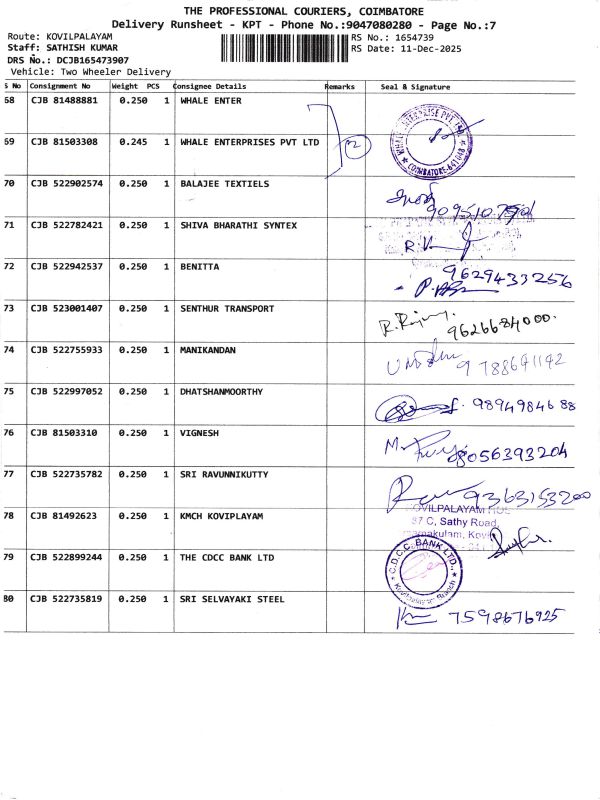 THE PROFESSIONAL COURIERS, COIMBATORE
Delivery Runsheet - KPT - Phone No.:9047080280 - Page No.:7
Route: KOVILPALAYAM
RS No.: 1654739
Staff: SATHISH KUMAR
RS Date: 11-Dec-2025
DRS No.: DCJB165473907
Vehicle: Two Wheeler Delivery
S No Consignment No Weight PCS Consignee Details Remarks Seal & Signature
68 CJB 81488881 0.250 1 WHALE ENTER
69 CJB 81503308 0.245 1 WHALE ENTERPRISES PVT LTD 2
WHALE ENTERPRISE PVT. LTD. COIMBATORE-641048
70 CJB 522902574 0.250 1 BALAJEE TEXTIELS
71 CJB 522782421 0.250 1 SHIVA BHARATHI SYNTEX
72 CJB 522942537 0.250 1 BENITTA 9629433256
73 CJB 523001407 0.250 1 SENTHUR TRANSPORT 9626684000.
74 CJB 522755933 0.250 1 MANIKANDAN 9788641142
75 CJB 522997052 0.250 1 DHATSHANMOORTHY 9894984688
76 CJB 81503310 0.250 1 VIGNESH 8056393204
77 CJB 522735782 0.250 1 SRI RAVUNNIKUTTY 9363153200
78 CJB 81492623 0.250 1 KMCH KOVIPLAYAM
OVILPALAYAM
87 C, Sathy Road,
79 CJB 522899244 0.250 1 THE CDCC BANK LTD
C.D.C.C. BANK LTD., Kovilpalayam Branch
80 CJB 522735819 0.250 1 SRI SELVAYAKI STEEL 7598676925